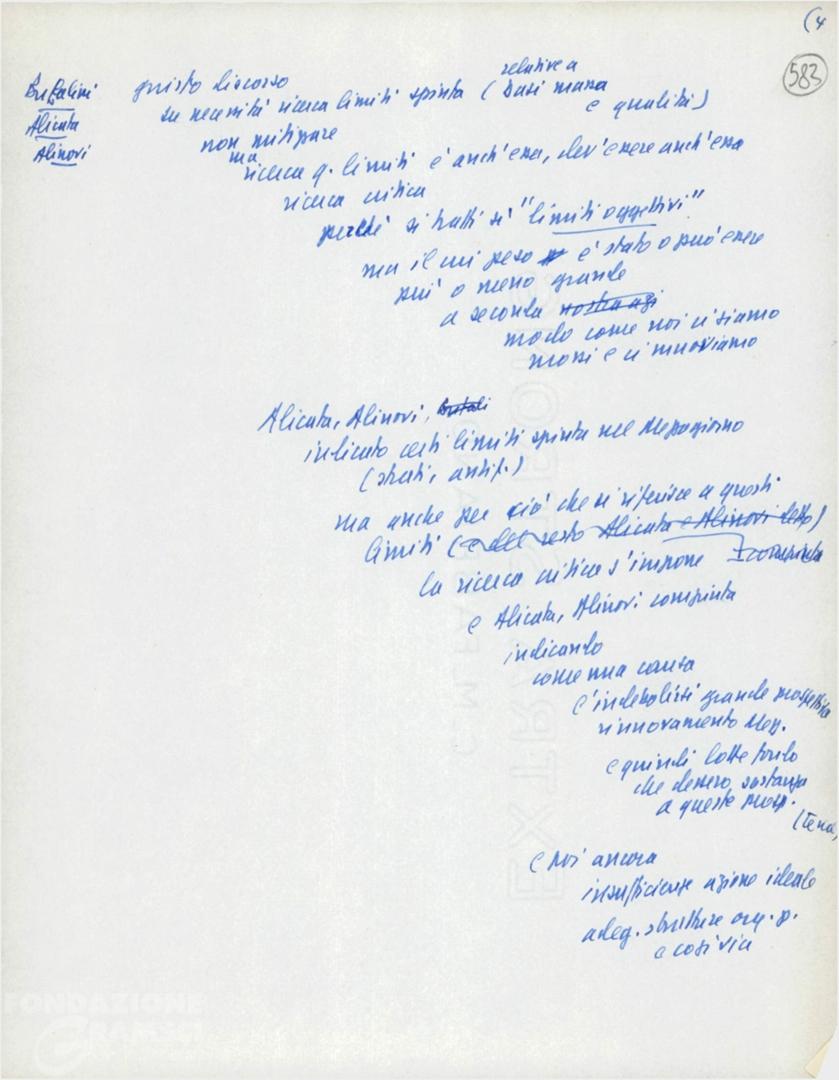 (4
583
Bufalini
Alicata
Alinovi
giusto discorso
su necessità ricerca limiti spinta (relative a basi massa
e qualità)
non mitizzare
ma
ricerca q. limiti è anch'essa, dev'essere anch'essa
ricerca critica
perché si tratti di "limiti oggettivi"
ma il cui peso è stato o può essere
più o meno grande
a seconda nostra azi
modo come noi ci siamo
mossi e ci muoviamo
Alicata, Alinovi,
indicato certi limiti spinta nel Mezzogiorno
(strati, antif.)
ma anche per ciò che si riferisce a questi
limiti (e del resto Alicata e Alinovi)
la ricerca critica s'impone
e Alicata, Alinovi compiuta
indicando
come una causa
l'indebolirsi grande prospettiva
rinnovamento Mezz.
e quindi lotte
che dessero sostanza
a queste prosp.
(terra,
e poi ancora
insufficienze azione ideale
adeg. strutture org. p.
e così via
FONDAZIONE
GRAMSCI